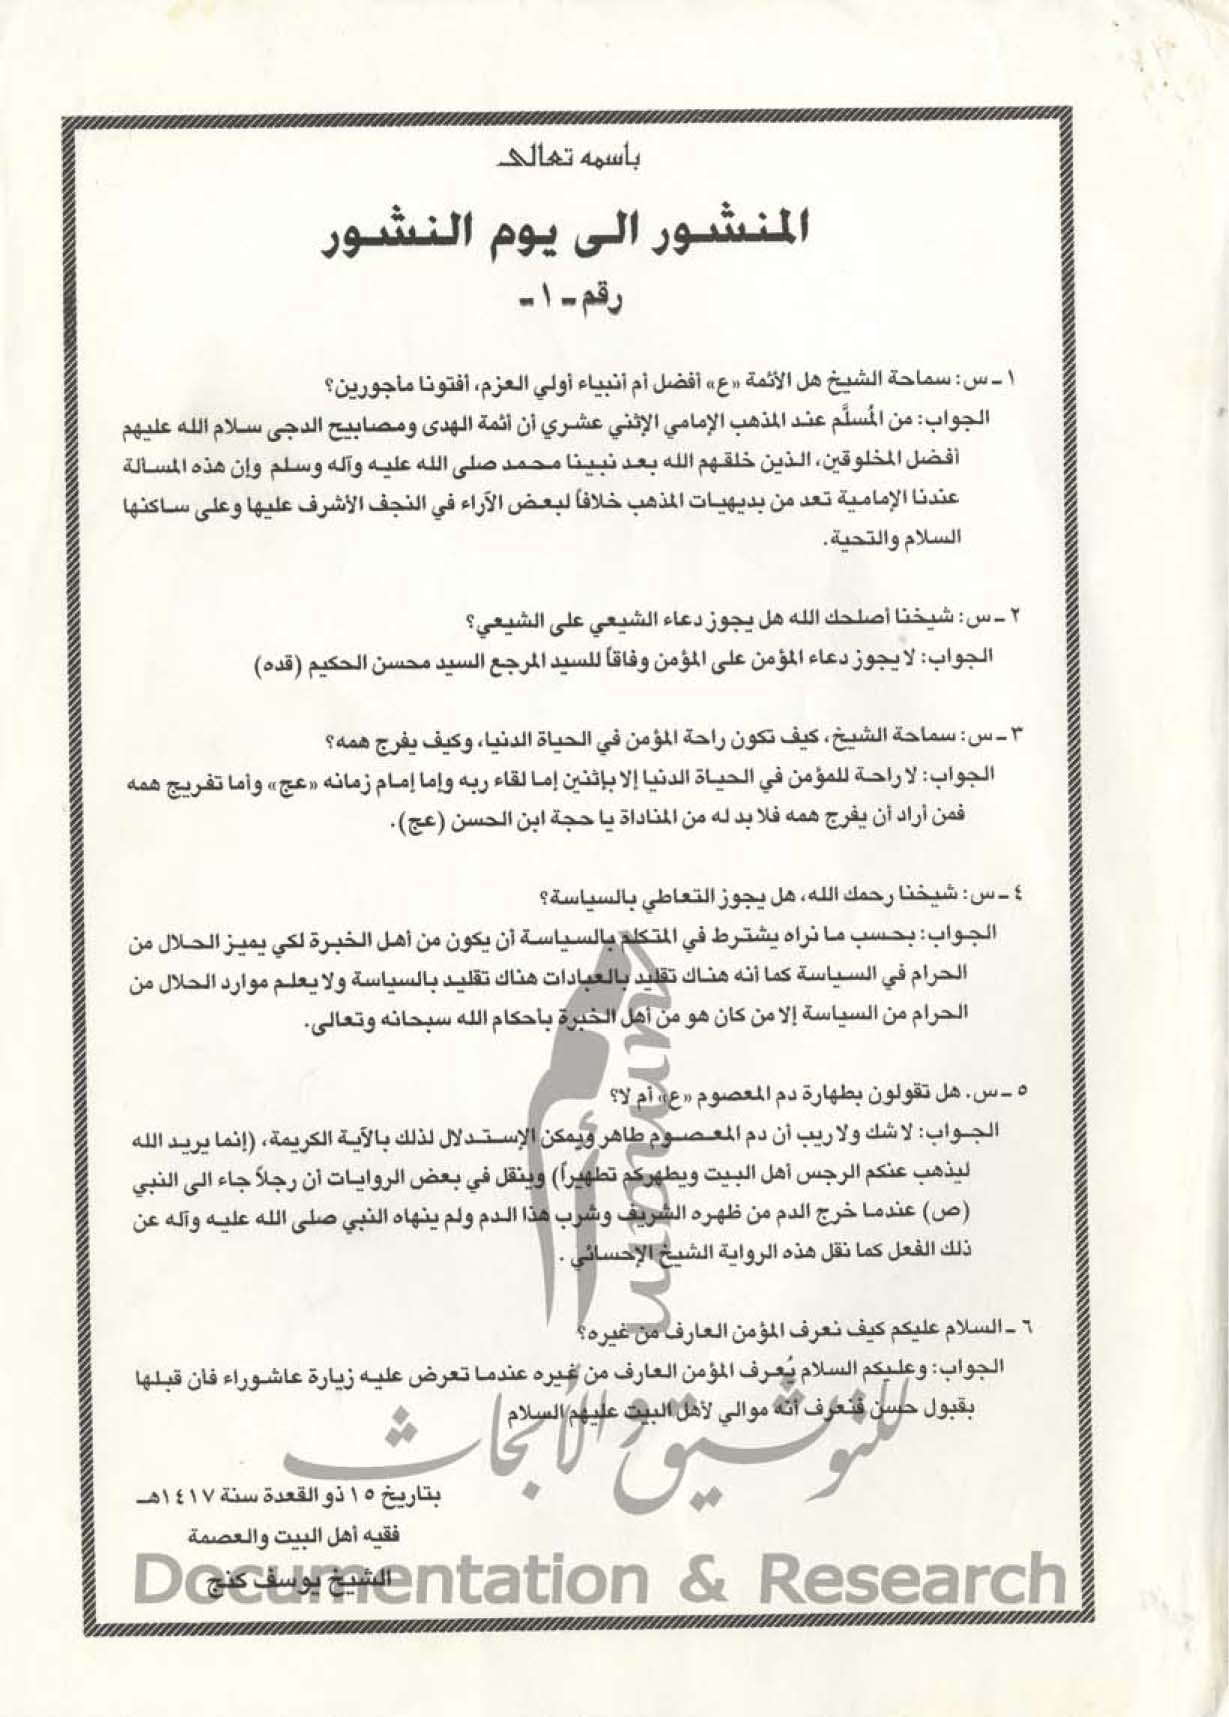 بأسمه تعالى
المنشور الى يوم النشور
رقم - ١ -
١ - س: سماحة الشيخ هل الأئمة «ع» أفضل أم أنبياء أولي العزم، أفتونا مأجورين؟
الجواب: من المُسلَّم عند المذهب الإمامي الإثني عشري أن أئمة الهدى ومصابيح الدجى سلام الله عليهم
أفضل المخلوقين، الذين خلقهم الله بعد نبينا محمد صلى الله عليه وآله وسلم وإن هذه المسألة
عندنا الإمامية تعد من بديهيات المذهب خلافاً لبعض الآراء في النجف الأشرف عليها وعلى ساكنها
السلام والتحية.
٢ - س: شيخنا أصلحك الله هل يجوز دعاء الشيعي على الشيعي؟
الجواب: لا يجوز دعاء المؤمن على المؤمن وفاقاً للسيد المرجع السيد محسن الحكيم (قده)
٣ - س: سماحة الشيخ، كيف تكون راحة المؤمن في الحياة الدنيا، وكيف يفرج همه؟
الجواب: لا راحة للمؤمن في الحياة الدنيا إلا بإثنين إما لقاء ربه وإما إمام زمانه «عج» وأما تفريج همه
فمن أراد أن يفرج همه فلا بد له من المناداة يا حجة ابن الحسن (عج).
٤ - س: شيخنا رحمك الله، هل يجوز التعاطي بالسياسة؟
الجواب: بحسب ما نراه يشترط في المتكلم بالسياسة أن يكون من أهل الخبرة لكي يميز الحلال من
الحرام في السياسة كما أنه هناك تقليد بالعبادات هناك تقليد بالسياسة ولا يعلم موارد الحلال من
الحرام من السياسة إلا من كان هو من أهل الخبرة بأحكام الله سبحانه وتعالى.
٥ - س. هل تقولون بطهارة دم المعصوم «ع» أم لا؟
الجواب: لا شك ولا ريب أن دم المعصوم طاهر ويمكن الإستدلال لذلك بالآية الكريمة، (إنما يريد الله
ليذهب عنكم الرجس أهل البيت ويطهركم تطهيراً) وينقل في بعض الروايات أن رجلاً جاء الى النبي
(ص) عندما خرج الدم من ظهره الشريف وشرب هذا الدم ولم ينهاه النبي صلى الله عليه وآله عن
ذلك الفعل كما نقل هذه الرواية الشيخ الإحسائي .
٦ - السلام عليكم كيف نعرف المؤمن العارف من غيره؟
الجواب: وعليكم السلام يُعرف المؤمن العارف من غيره عندما تعرض عليه زيارة عاشوراء فان قبلها
بقبول حسن فنعرف أنه موالي لأهل البيت عليهم السلام
أمم
umam
للتوثيق والأبحاث
بتاريخ ١٥ ذو القعدة سنة ١٤١٧هـ
فقيه أهل البيت والعصمة
الشيخ يوسف كنج
Documentation & Research